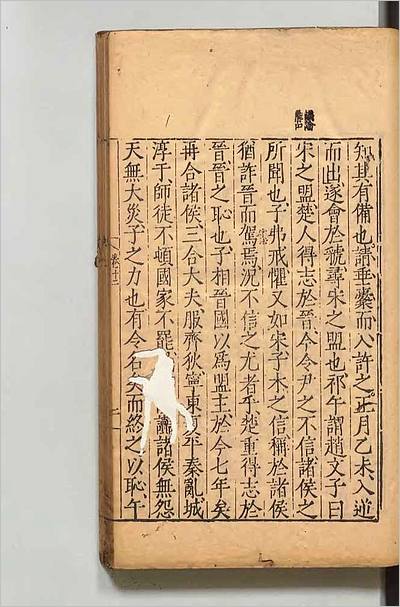 知其有備也請垂櫜而入許之正月乙未入逆
而出遂會於虢尋宋之盟也祁午謂趙文子曰
宋之盟楚人得志於晉今令尹之不信諸侯之
所聞也子弗戒懼又如宋子木之信稱於諸侯
猶詐晉而駕焉況不信之尤者乎楚重得志於
晉晉之恥也子相晉國以爲盟主於今七年矣
再合諸侯三合大夫服齊狄寧東平秦亂城
淳于師徒不頓國家不罷讟諸侯無怨
天無大災子之力也有令名矣而終之以恥午
卷十二